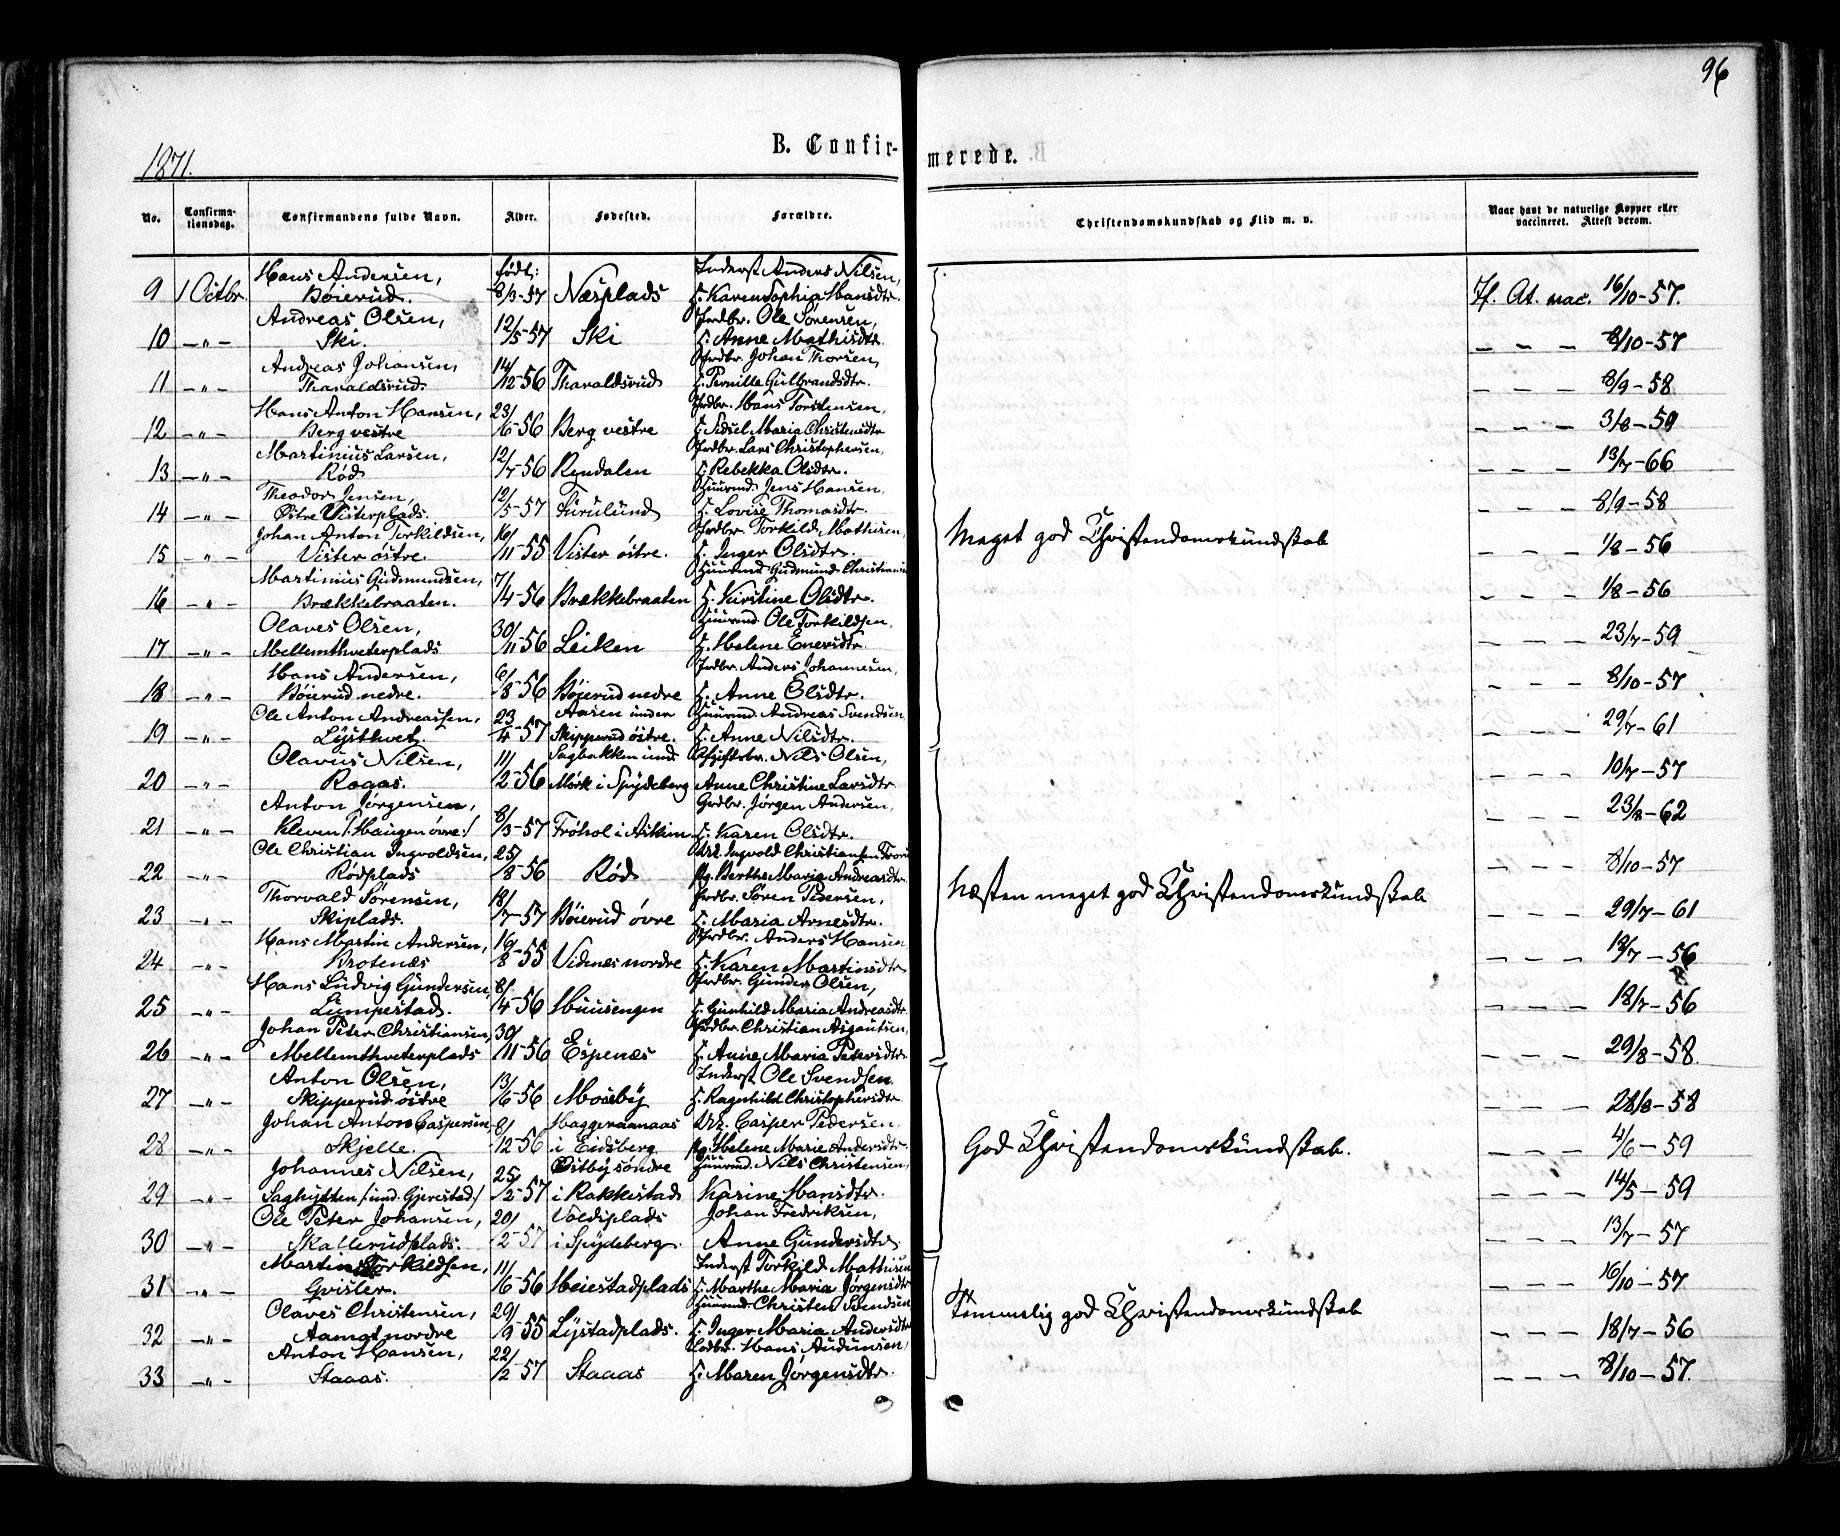 96
1871.
B. Confir-
merede.
No.
Confirma-
tionsdag.
Confirmandens fulde Navn.
Alder.
Fødested.
Forældre.
Christendomskundskab og Flid m. v.
Naar havt de naturlige Kopper eller
vaccineret. Attest derom.
Hans Andersen, født: Inderst Anders Nilsen,
9 1 Octbr. Bøierud. 8/3-57 Næsplads H. Karen Sophia Hansdtr. If. At. vac. 16/10-57.
Andreas Olsen, Grdbr. Ole Sørensen,
10 -"- Ski. 12/5-57 Ski H. Anne Mathisdtr. - - - 8/10-57
Andreas Johansen, Grdbr. Johan Thorsen,
11 -"- Tharaldsrud. 14/12-56 Tharaldsrud H. Pernille Gulbrandsdtr. - - - 8/9-58
Hans Anton Hansen, Grdbr. Hans Torstensen,
12 -"- Berg vestre 23/6-56 Berg vestre H. Sidsel Maria Christensdtr - - - 3/8-59
Martinius Larsen, Grdbr. Lars Christophersen,
13 -"- Rød 12/7-56 Rendalen H. Rebekka Olsdtr. - - - 13/7-66
Theodor Jensen, Huusmd. Jens Hansen,
14 -"- Østre Visterplads. 12/5-57 Furulund H. Lovise Thomasdtr. - - - 8/9-58
Johan Anton Torkildsen, Grdbr. Torkild Mathisen,
15 -"- Vister østre. 10/11-55 Vister østre. H. Inger Olsdtr. Meget god Christendomskundskab - - - 1/8-56
Martinius Gudmundsen, Huusmd Gudmund Christiansen
16 -"- Brækkebraaten. 7/4-56 Brækkebraaten H. Kirstine Olsdtr. - - - 1/8-56
Olaves Olsen, Huusmd. Ole Torkildsen,
17 -"- Mellemthveterplads 30/11-56 Leiken H. Helene Enersdtr. - - - 23/7-59
Hans Andersen, Grdbr. Anders Johannesen,
18 -"- Bøierud nedre. 6/8-56 Bøierud nedre H. Anne Olsdtr. - - - 8/10-57
Ole Anton Andreassen, Aasen under Huusmd. Andreas Svendsen,
19 -"- Lysthvet. 23/4-57 Skipperud østre. H. Anne Nilsdtr. - - - 29/7-61
Olavus Nilsen, Sagbakken und Afgiftsbr. Nils Olsen,
20 -"- Raaas. 11/2-56 Mörk i Spydeberg Anne Christine Larsdtr - - - 10/7-57
Anton Jørgensen, Grdbr. Jørgen Andersen,
21 -"- Kleven /: Haugen øvre :/ 8/3-57 Fröhol i Askim H. Karen Olsdtr. - - - 23/8-62
Ole Christian Ingvoldsen, Ukl. Ingvold Christiansen
22 -"- Rødplads 25/8-56 Rød Pg. Berthe Marie Andreasdtr. - - - 8/10-57
Thorvald Sørensen, Grdbr. Søren Pedersen,
23 -"- Skiplads. 18/7-57 Bøierud øvre H. Maria Arnesdtr. Næsten meget god Christendomskundskab - - - 29/7-61
Hans Martin Andersen, Grdbr. Anders Hansen
24 -"- Brotenæs 16/8-55 Vidnæs nordre H. Karen Martinsdtr - - - 18/7-56
Hans Ludvig Gundersen, Grdbr. Gunder Olsen,
25 -"- Lumpestad. 8/4-56 Huusengen H. Gunhild Maria Andreasdtr - - - 18/7-56
Johan Peter Christiansen, Grdbr. Christian Asgautsen,
26 -"- Mellemthveterplads 30/11-56 Espenæs H. Anne Maria Petersdtr. - - - 29/8-58.
Anton Olsen, Inderst Ole Svendsen,
27 -"- Skipperud østre 13/6-56 Mosby H. Ragnhild Christophersdtr - - - 28/8-58
Johan Anton Caspersen, Haggeraanaas Ukl. Casper Pedersen,
28 -"- Skjelle. 8/12-56 i Eidsberg Pg. Helene Marie Andersdtr. God Christendomskundskab. - - - 4/6-59
Johannes Nilsen, Østby søndre Huusmd. Nils Christensen,
29 -"- Saghytten /: und. Gjerestad :/ 25/2-57 i Rakkestad Karine Hansdtr. - - - 14/5-59
Ole Peter Johansen, Voldsplads Johan Fredriksen,
30 -"- Skallerudplads. 20/2-57 i Spydeberg. Anne Gundersdtr. - - - 13/7-57
Martin Torkildsen, Inderst Torkild Mathisen
31 -"- Gvisler. 11/6-56 Heiestadplads H. Marthe Maria Jørgensdtr - - - 16/10-57
Olaves Christensen, Huusmd. Christen Svendsen
32 -"- Aamot nordre 29/9-55 Lystadplads. H. Inger Maria Andersdtr Temmelig god Christendomskundskab - - - 18/7-56
Anton Hansen, Hans Audunsen,
33 -"- Staaas. 22/2-57 Staaas H. Maren Jørgensdtr. - - - 8/10-57.